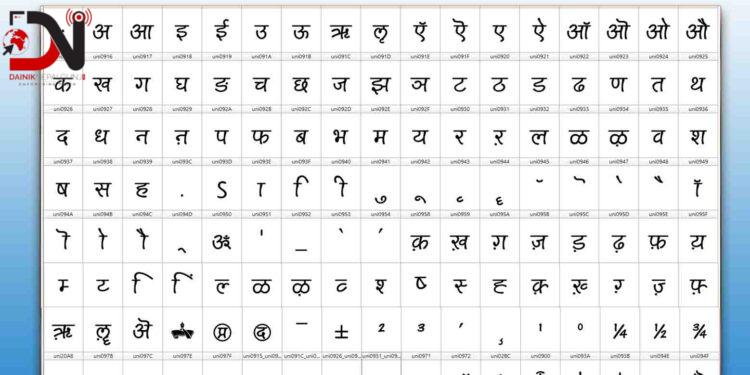 DN
DAINIK NEPALGUNJ
अ आ इ ई उ ऊ ऋ ऌ ऍ ऎ ए ऐ ऑ ऒ ओ औ
uni0916 uni0917 uni0918 uni0919 uni091A uni091B uni091C uni091D uni091E uni091F uni0920 uni0921 uni0922 uni0923 uni0924 uni0925
क ख ग घ ङ च छ ज झ ञ ट ठ ड ढ ण त थ
uni0926 uni0927 uni0928 uni0929 uni092A uni092B uni092C uni092D uni092E uni092F uni0930 uni0931 uni0932 uni0933 uni0934 uni0935 uni0936
द ध न ऩ प फ ब भ म य र ऱ ल ळ ऴ व श
uni0937 uni0938 uni0939 uni093C uni093D uni093E uni093F uni0940 uni0941 uni0942 uni0943 uni0944 uni0945 uni0946 uni0947 uni0948 uni0949
ष स ह . ऽ ा ि ी ु ू ृ ॅ ॆ े ै ॉ
uni094A uni094B uni094C uni094D uni0950 uni0951 uni0952 uni0953 uni0954 uni0958 uni0959 uni095A uni095B uni095C uni095D uni095E uni095F
ॊ ो ौ ् ॐ ॑ ॒ ॓ ॔ क़ ख़ ग़ ज़ ड़ ढ़ फ़ य़
ल ळ ऴ व श ष स ह क़ ख़ ग़ ज़ फ़
ॠ ॡ ॲ ± ² ³ ¹ º ¼ ½ ¾
uni20A8 uni097B uni097C uni097E uni097F uni0971 uni0972 uni02BC uni0900 uni093A uni093B uni094E uni094F